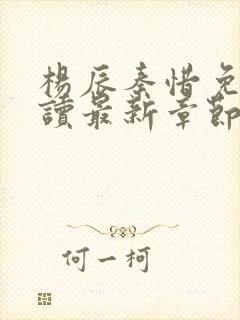 楊辰秦惜免
讀最新章節
何一柯